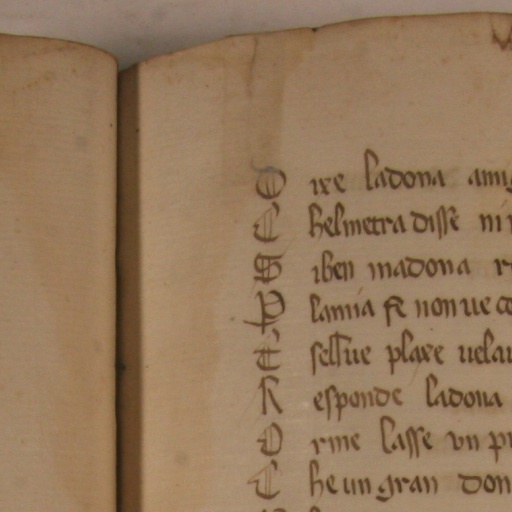 D ixe ladona amig
C helmetra disse ni
S iben madona r
P lamia fe non ue co
E sel ue plaxe uelau
R esponde ladona
O rme lasse vn pr
C he un gran don